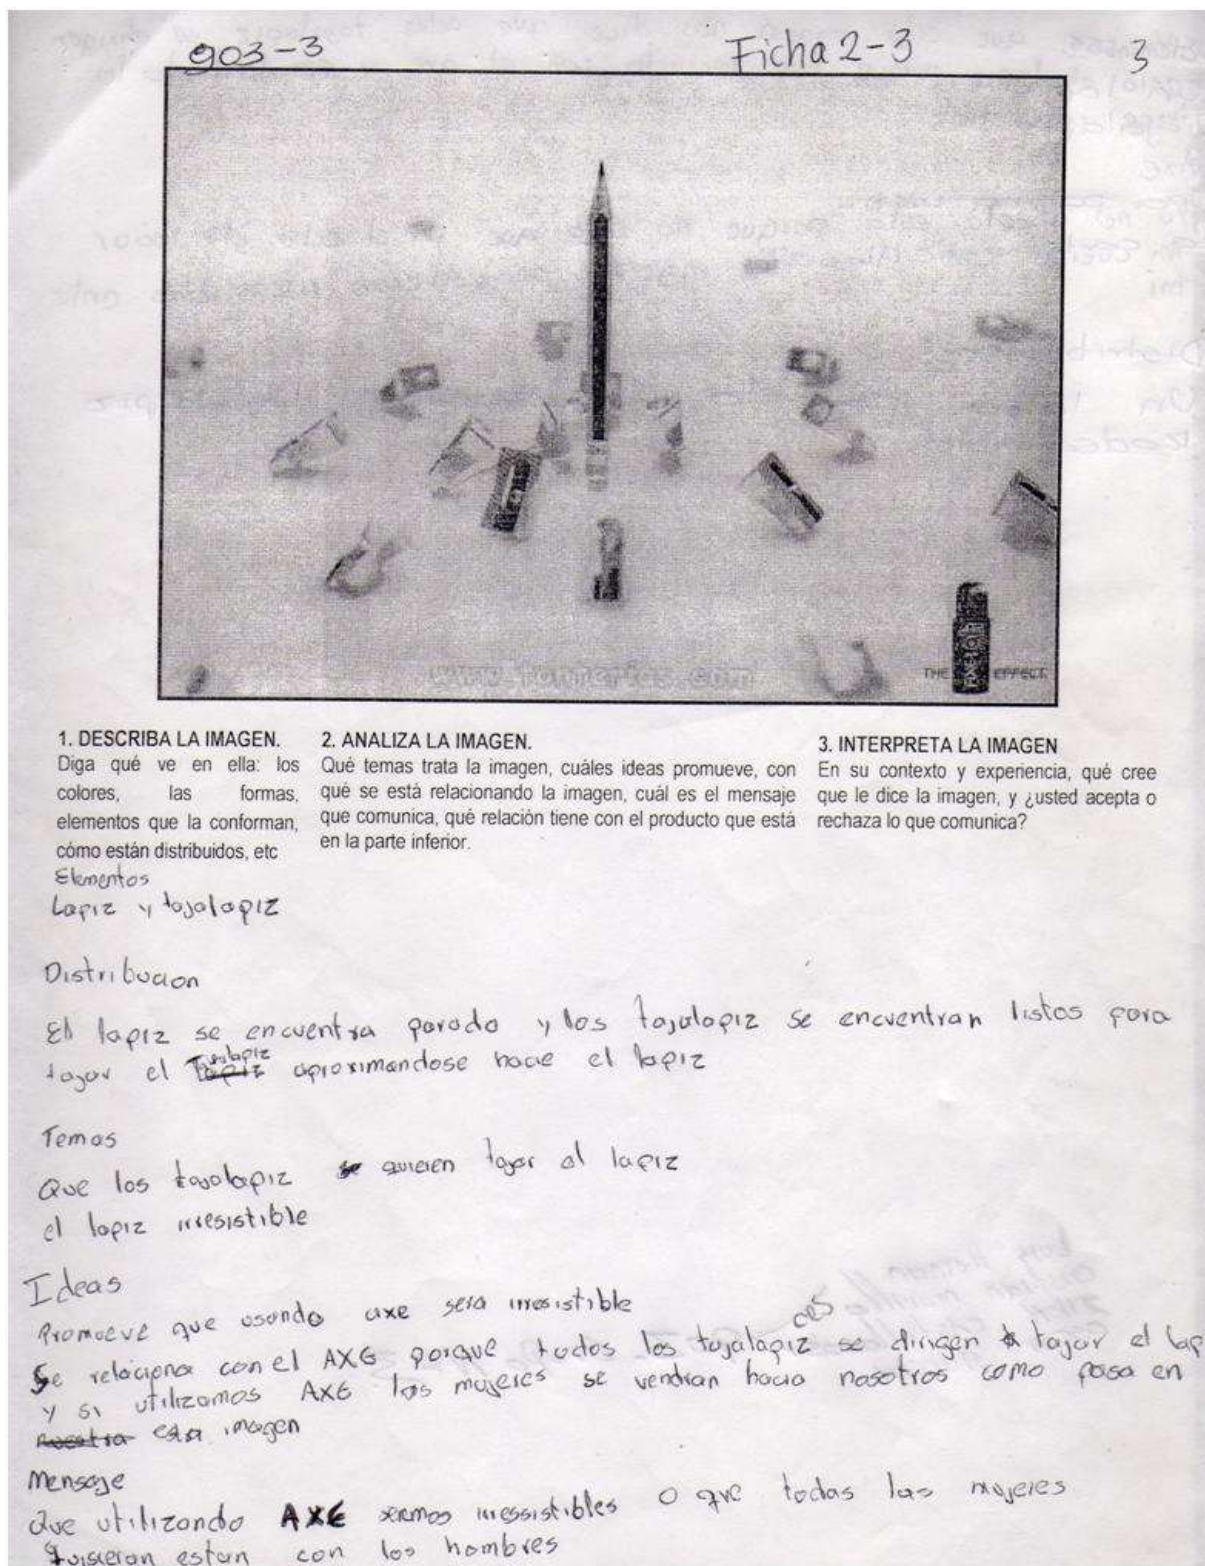 903-3
Ficha 2-3
3
THE AXE EFFECT
1. DESCRIBA LA IMAGEN.
Diga qué ve en ella: los
colores, las formas,
elementos que la conforman,
cómo están distribuidos, etc
2. ANALIZA LA IMAGEN.
Qué temas trata la imagen, cuáles ideas promueve, con
qué se está relacionando la imagen, cuál es el mensaje
que comunica, qué relación tiene con el producto que está
en la parte inferior.
3. INTERPRETA LA IMAGEN
En su contexto y experiencia, qué cree
que le dice la imagen, y ¿usted acepta o
rechaza lo que comunica?
Elementos
Lapiz y tajalapiz
Distribucion
El lapiz se encuentra parado y los tajalapiz se encuentran listos para
tajar el Tajalapiz aproximandose hacie el lapiz
Temas
Que los tajalapiz quieren tajar al lapiz
el lapiz irresistible
Ideas
Promueve que usando axe sera irresistible
Se relaciona con el AXE porque todos los tajalapiz ces se dirigen a tajar el lap
y si utilizamos AXE las mujeres se vendrian hacia nosotros como pasa en
nuestra esta imagen
Mensaje
Que utilizando AXE seremos irressistibles o que todas las mujeres
quisieran estan con los hombres